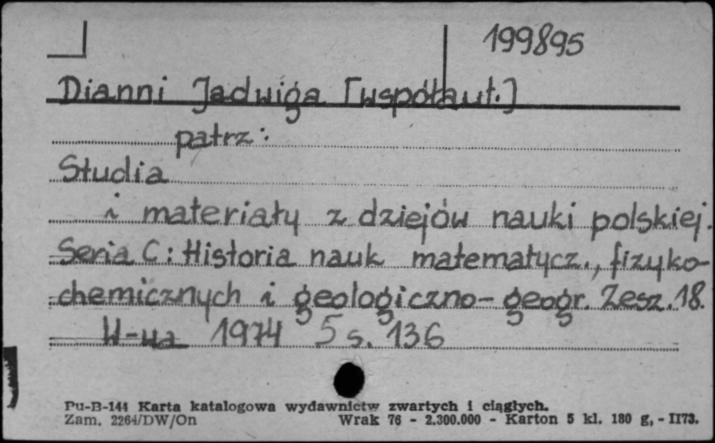 199895
Dianni Jadwiga [współaut.]
patrz:
Studia
i materiały z dziejów nauki polskiej.
Seria C: Historia nauk matematycz., fizyko-
chemicznych i geologiczno-geogr. Zesz. 18.
W-wa 1974 5 s. 136
Pu-B-144 Karta katalogowa wydawnictw zwartych i ciągłych.
Zam. 2264/DW/On Wrak 76 - 2.300.000 - Karton 5 kl. 180 g, - II73.